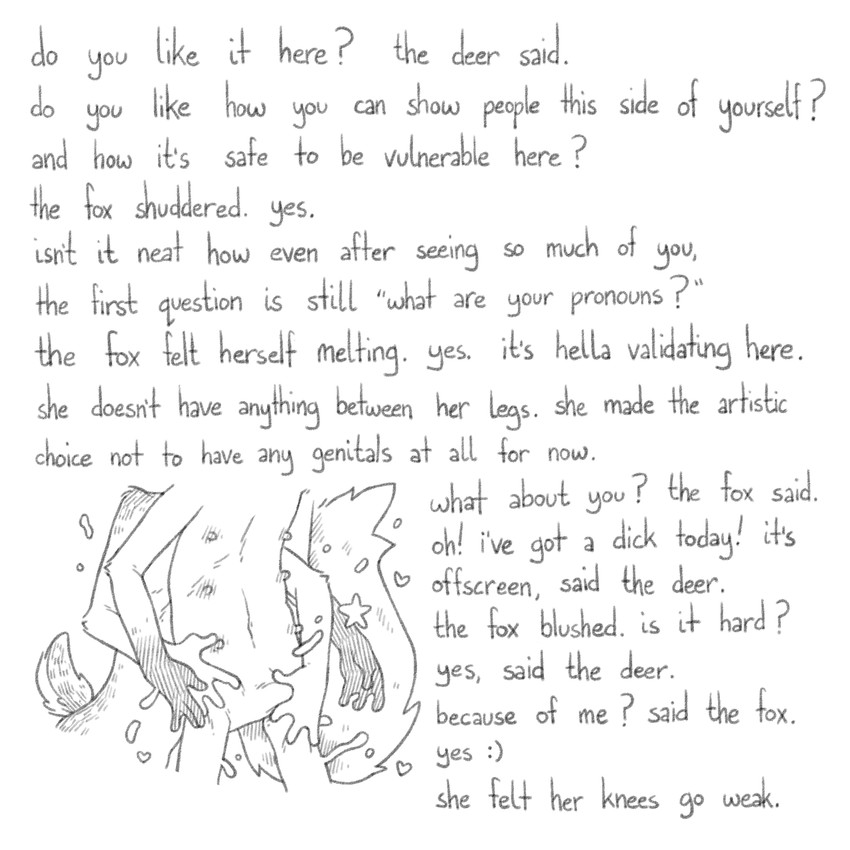 do you like it here? the deer said.
do you like how you can show people this side of yourself?
and how it's safe to be vulnerable here?
the fox shuddered. yes.
isn't it neat how even after seeing so much of you,
the first question is still "what are your pronouns?"
the fox felt herself melting. yes. it's hella validating here.
she doesn't have anything between her legs. she made the artistic
choice not to have any genitals at all for now.
what about you? the fox said.
oh! i've got a dick today! it's
offscreen, said the deer.
the fox blushed. is it hard?
yes, said the deer.
because of me? said the fox.
yes :)
she felt her knees go weak.